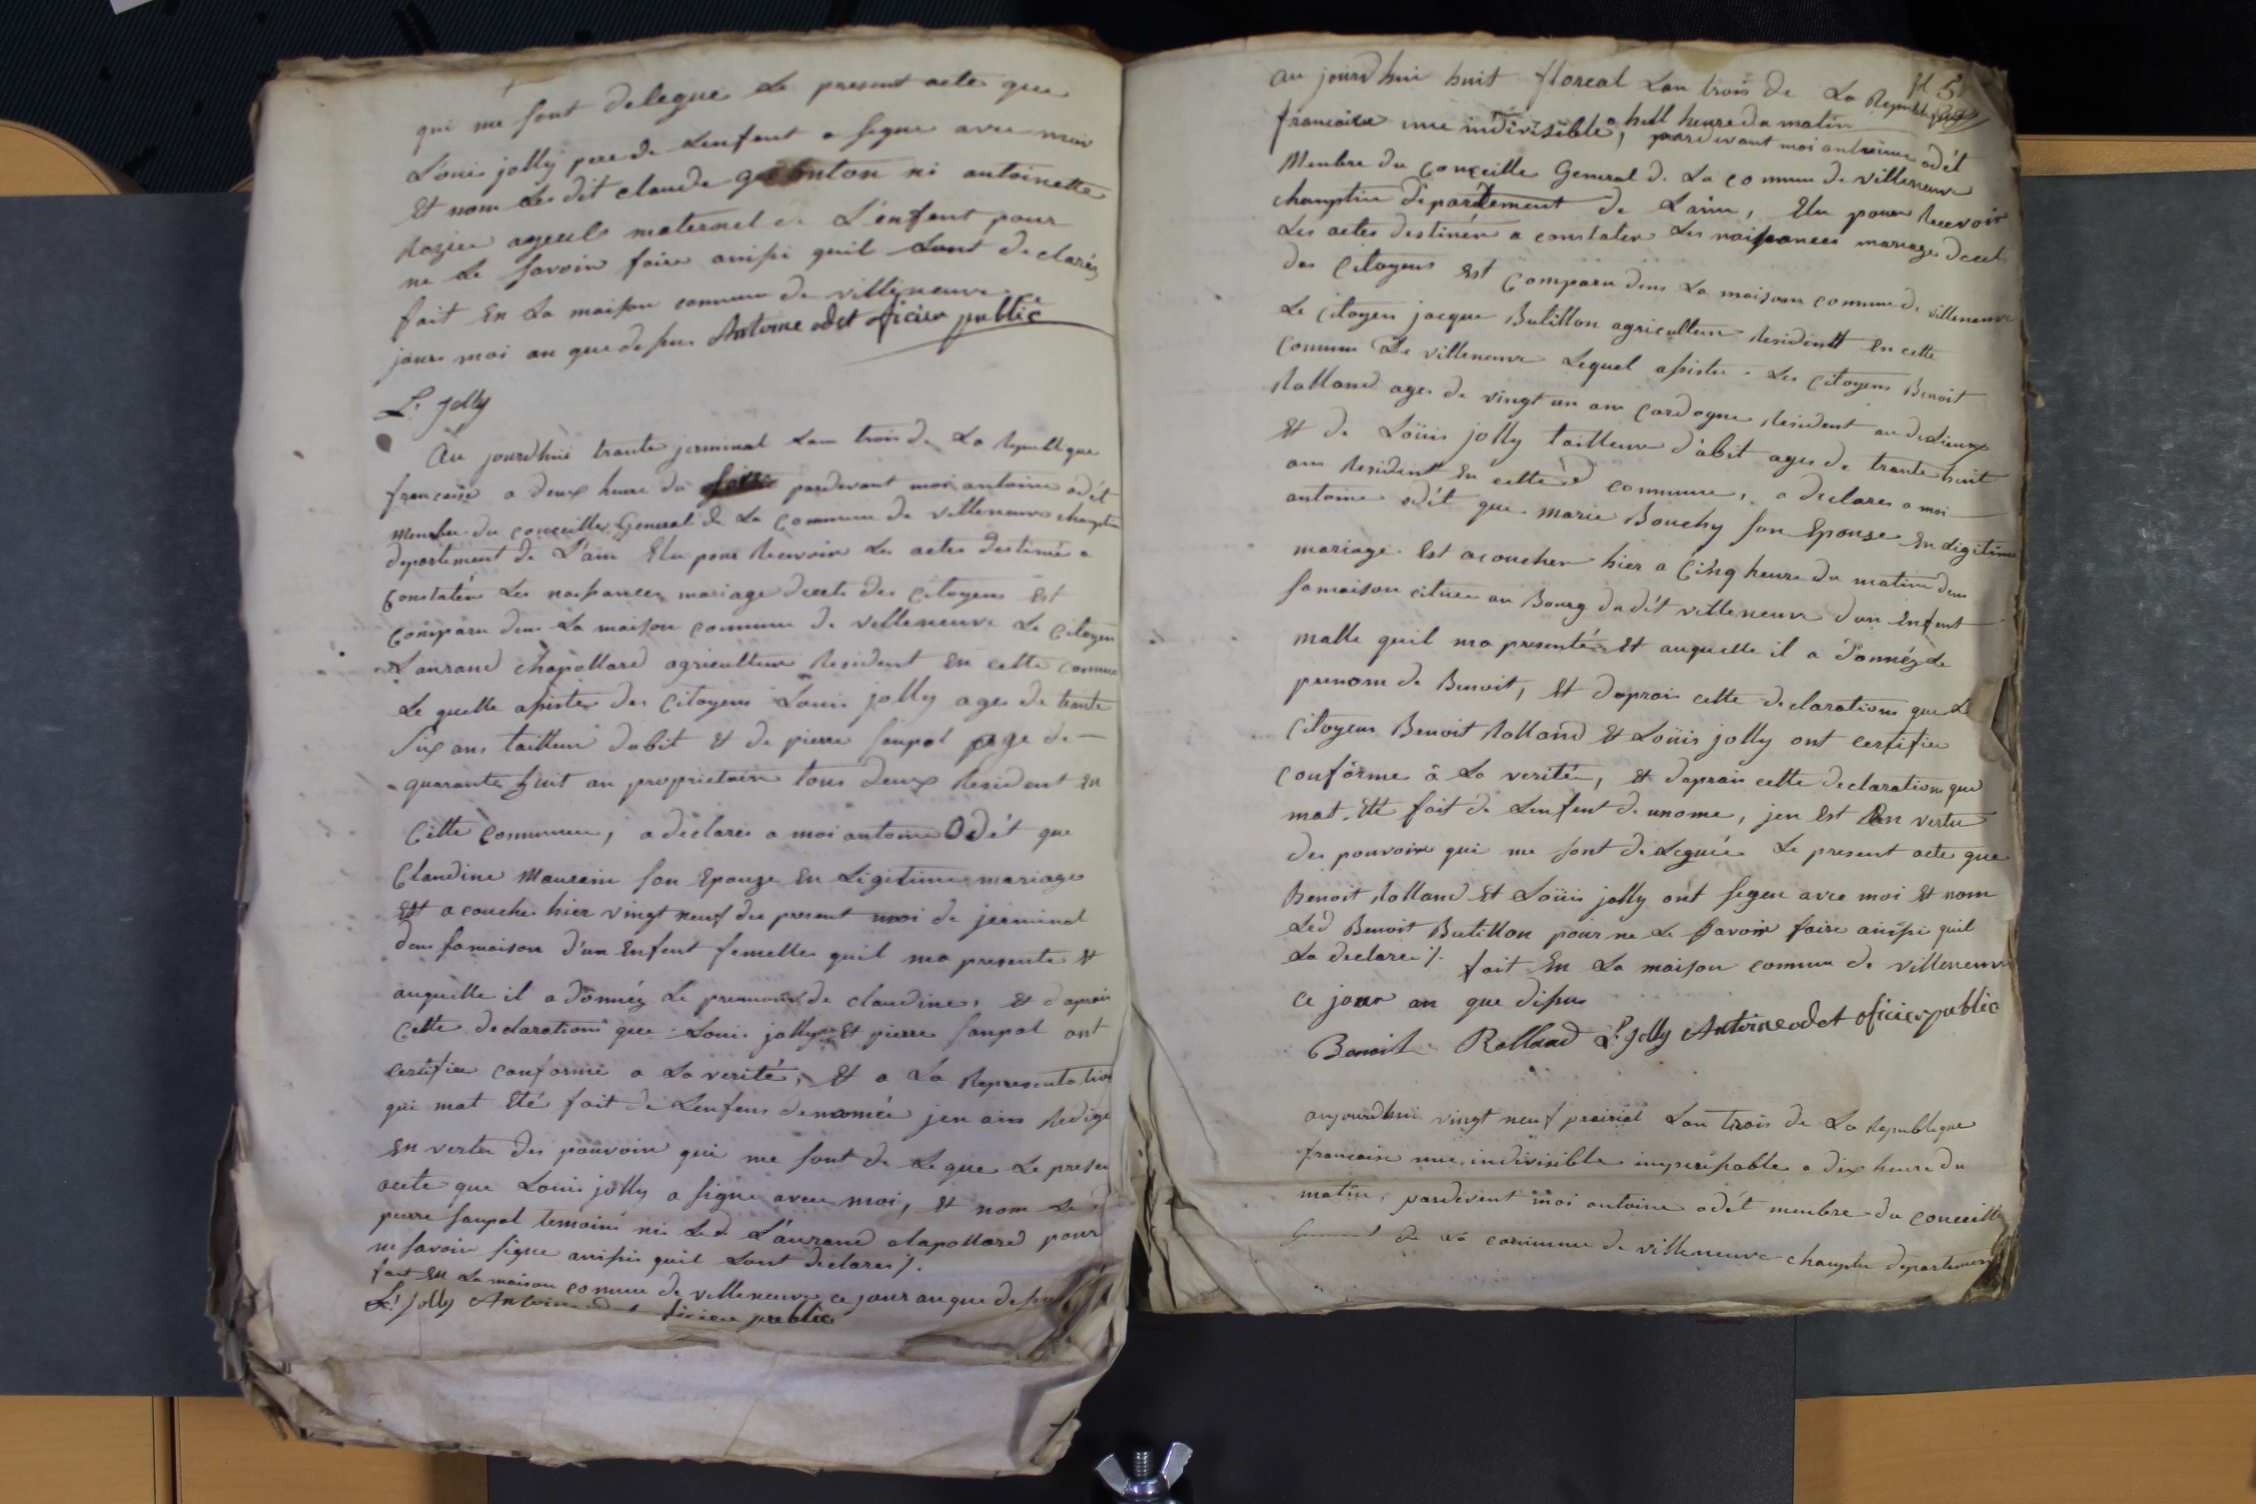 qui me sont delegue Le present acte que
Louis jolly pere de Lenfent a signe avec moi
Et nom Les dit claude ni antoinette
Rozier ayeuls maternel de L'enfent pour
ne Le savoir faire ainssi quil Lont declarés
fait En La maison commune de villeneuve
jours moi an que dessus Antoine odet oficier public
L. Jolly
Au jourdhui trante jerminal Lan trois de La Republique
francaise a deux heure du pardevant moi antoine odét
Menbre du conceille General de La commune de villeneuve chanptin
departement de L'ain Elu pour Recevoir Les actes destiné a
constatér Les naissances mariage decets des citoyens Est
comparu dens La maison commune de villeneuve Le Citoyen
Laurand chapollard agriculteur Resident En cette commune
Le quelle assister des Citoyens Louis jolly ages de trante
Six ans tailleur dabit Et de pierre saupol age de
quarante huit an proprietaire tous deux Resident En
Cette commune, a déclarés a moi antoine Odét que
Claudine son Epouze En Légitime mariage
Est acouche hier vingt neuf du present moi de jerminal
dens samaison d'un Enfent femelle quil ma presente Et
auquelle il a donnéz Le prenom de claudine, Et daprais
Cette declarations que Louis jolly Et pierre saupol ont
certifier conforme a La verité, Et a La Representation
qui mat Eté fait de Lenfens denomée jen ais Redige
En vertu des pouvoir qui me sont de Legue Le presen
acte que Louis jolly a signe avec moi, Et nom Le d
pierre saupol temoins ni Led Laurand chapollard pour
ne savoir signe ainssi quil Lont declares /.
fait En La maison comune de villeneuve ce jour an que dessus
L. Jolly Antoine odet oficier public
fl 5
au jourdhui huit floreal Lan trois de La Republique
francaise une indivisible, a huit heure du matin pardevant moi antoine odét
Menbre du Conceille General de La comune de villeneuve
chanptin departement de Lain, Elu pour Recevoir
Les actes destinér a constater Les naissances mariage decet
des Citoyens Est Comparu dens La maison comune de villeneuve
Le Citoyen jacque Butillon agriculteur Resident En cette
comune De villeneuve Lequel assister Les Citoyens Benoit
Rolland ages de vingt un ans Cordogne, Resident au
Et de Loüis jolly tailleur d'abit ages de trante huit
ans Resident En cette d commune, a declares a moi
antoine odét que marie Bouchy son Epouze En Légitime
mariage Est acoucher hier a Cinq heure du matin dens
samaison cituée au Bourg dudét villeneuve d'un Enfent
malle quil ma presentés Et auquelle il a donnéz Le
prenom de Benoit, Et daprais cette declarations que Le
Citoyens Benoit Rolland Et Loüis jolly ont certifier
conforme â La verité, Et daprais cette declarations que
mat Eté fait de Lenfent denome, jen Est En vertu
des pouvoir qui me sont de Leguéé Le present acte que
Benoit Rolland Et Loüis jolly ont signeu avec moi Et nom
Led Benoit Butillon pour ne Le savoir faire ainssi quil
La declaréé /. fait En La maison comune de villeneuve
ce jour an que dessus
Benoit Rolland L. Jolly Antoine odet oficier public
aujourdhui vingt neuf prairial Lan trois de La Republique
francaise une indivisible inperissable a dix heure du
matin, pardevent moi antoine odét menbre du conceille
de La commune de villeneuve chanptin departement